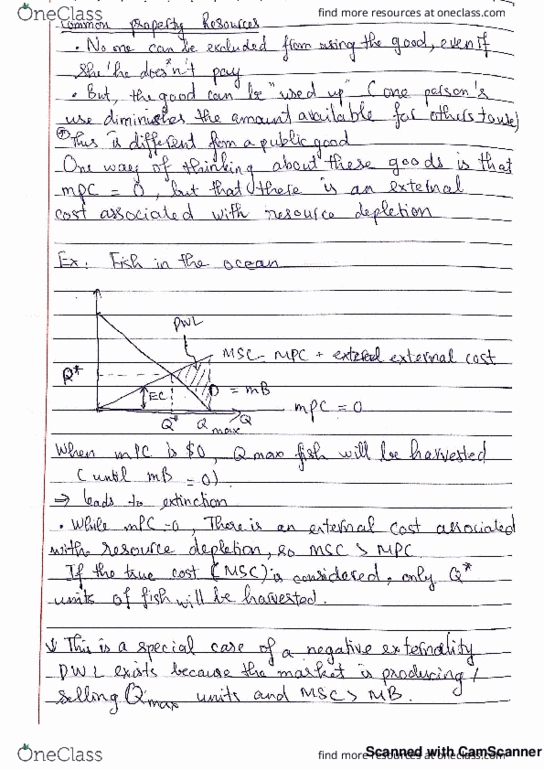 OneClass
find more resources at oneclass.com
Common property Resources
• No one can be excluded from using the good, even if
she/he doesn't pay
• But, the good can be "used up" (one person's
use diminishes the amount available for others to use)
This is different from a public good
One way of thinking about these goods is that
mPC = 0, but that there is an external
cost associated with resource depletion
Ex: Fish in the ocean
DWL
MSC = MPC + external cost
Q*
EC
D = mB
mPC = 0
Q*
Q max
Q
When mPC is $0, Q max fish will be harvested
(until mB = 0)
⇒ leads to extinction
• While mPC = 0, There is an external cost associated
with resource depletion, so MSC > MPC
If the true cost (MSC) is considered, only Q*
units of fish will be harvested.
This is a special case of a negative externality
DWL exists because the market is producing /
selling Qmax units and MSC > MB.
OneClass
find more resources at oneclass.com
Scanned with CamScanner